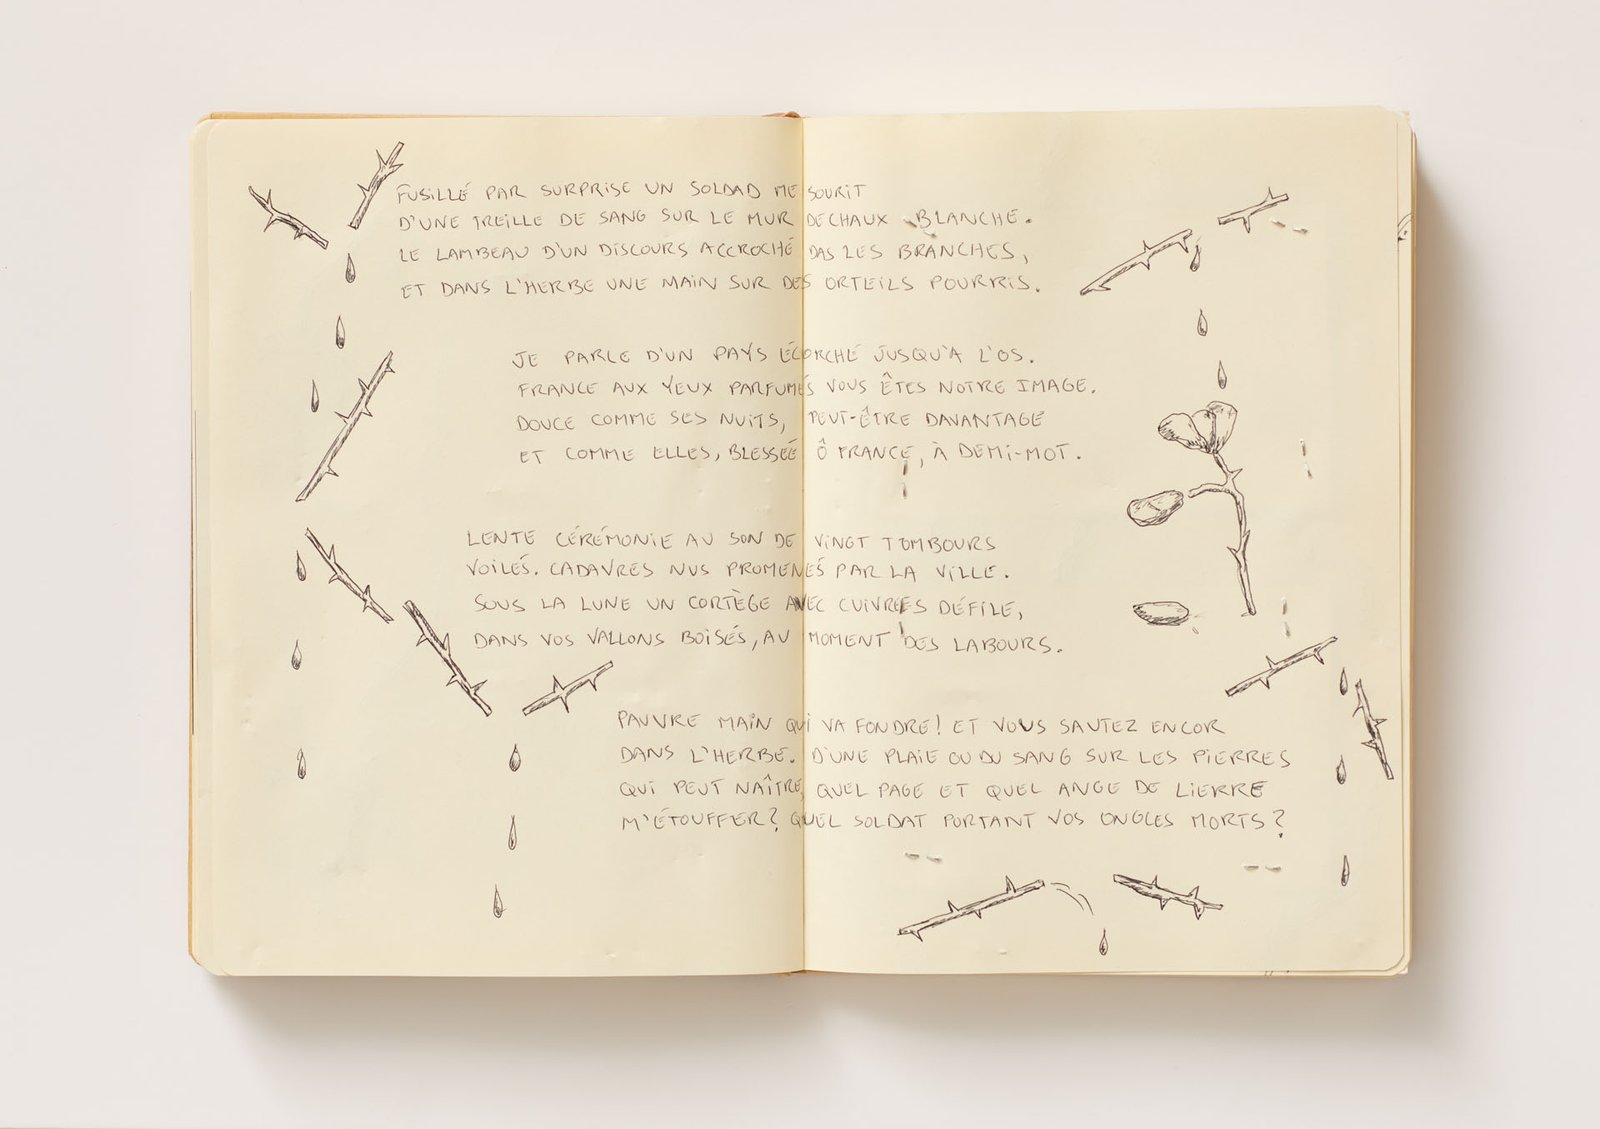 FUSILLÉ PAR SURPRISE UN SOLDAD ME SOURIT
D'UNE TREILLE DE SANG SUR LE MUR DE CHAUX BLANCHE.
LE LAMBEAU D'UN DISCOURS ACCROCHÉ DAS LES BRANCHES,
ET DANS L'HERBE UNE MAIN SUR DES ORTEILS POURRIS.
JE PARLE D'UN PAYS ÉCORCHÉ JUSQU'A L'OS.
FRANCE AUX YEUX PARFUMÉS VOUS ÊTES NOTRE IMAGE.
DOUCE COMME SES NUITS, PEUT-ÊTRE DAVANTAGE
ET COMME ELLES, BLESSÉE Ô FRANCE, À DEMI-MOT.
LENTE CÉRÉMONIE AU SON DE VINGT TOMBOURS
VOILÉS. CADAVRES NUS PROMENÉS PAR LA VILLE.
SOUS LA LUNE UN CORTÈGE AVEC CUIVRES DÉFILE,
DANS VOS VALLONS BOISÉS, AU MOMENT DES LABOURS.
PAUVRE MAIN QUI VA FONDRE! ET VOUS SAUTEZ ENCOR
DANS L'HERBE. D'UNE PLAIE OU DU SANG SUR LES PIERRES
QUI PEUT NAÎTRE, QUEL PAGE ET QUEL ANGE DE LIERRE
M'ÉTOUFFER? QUEL SOLDAT PORTANT VOS ONGLES MORTS?